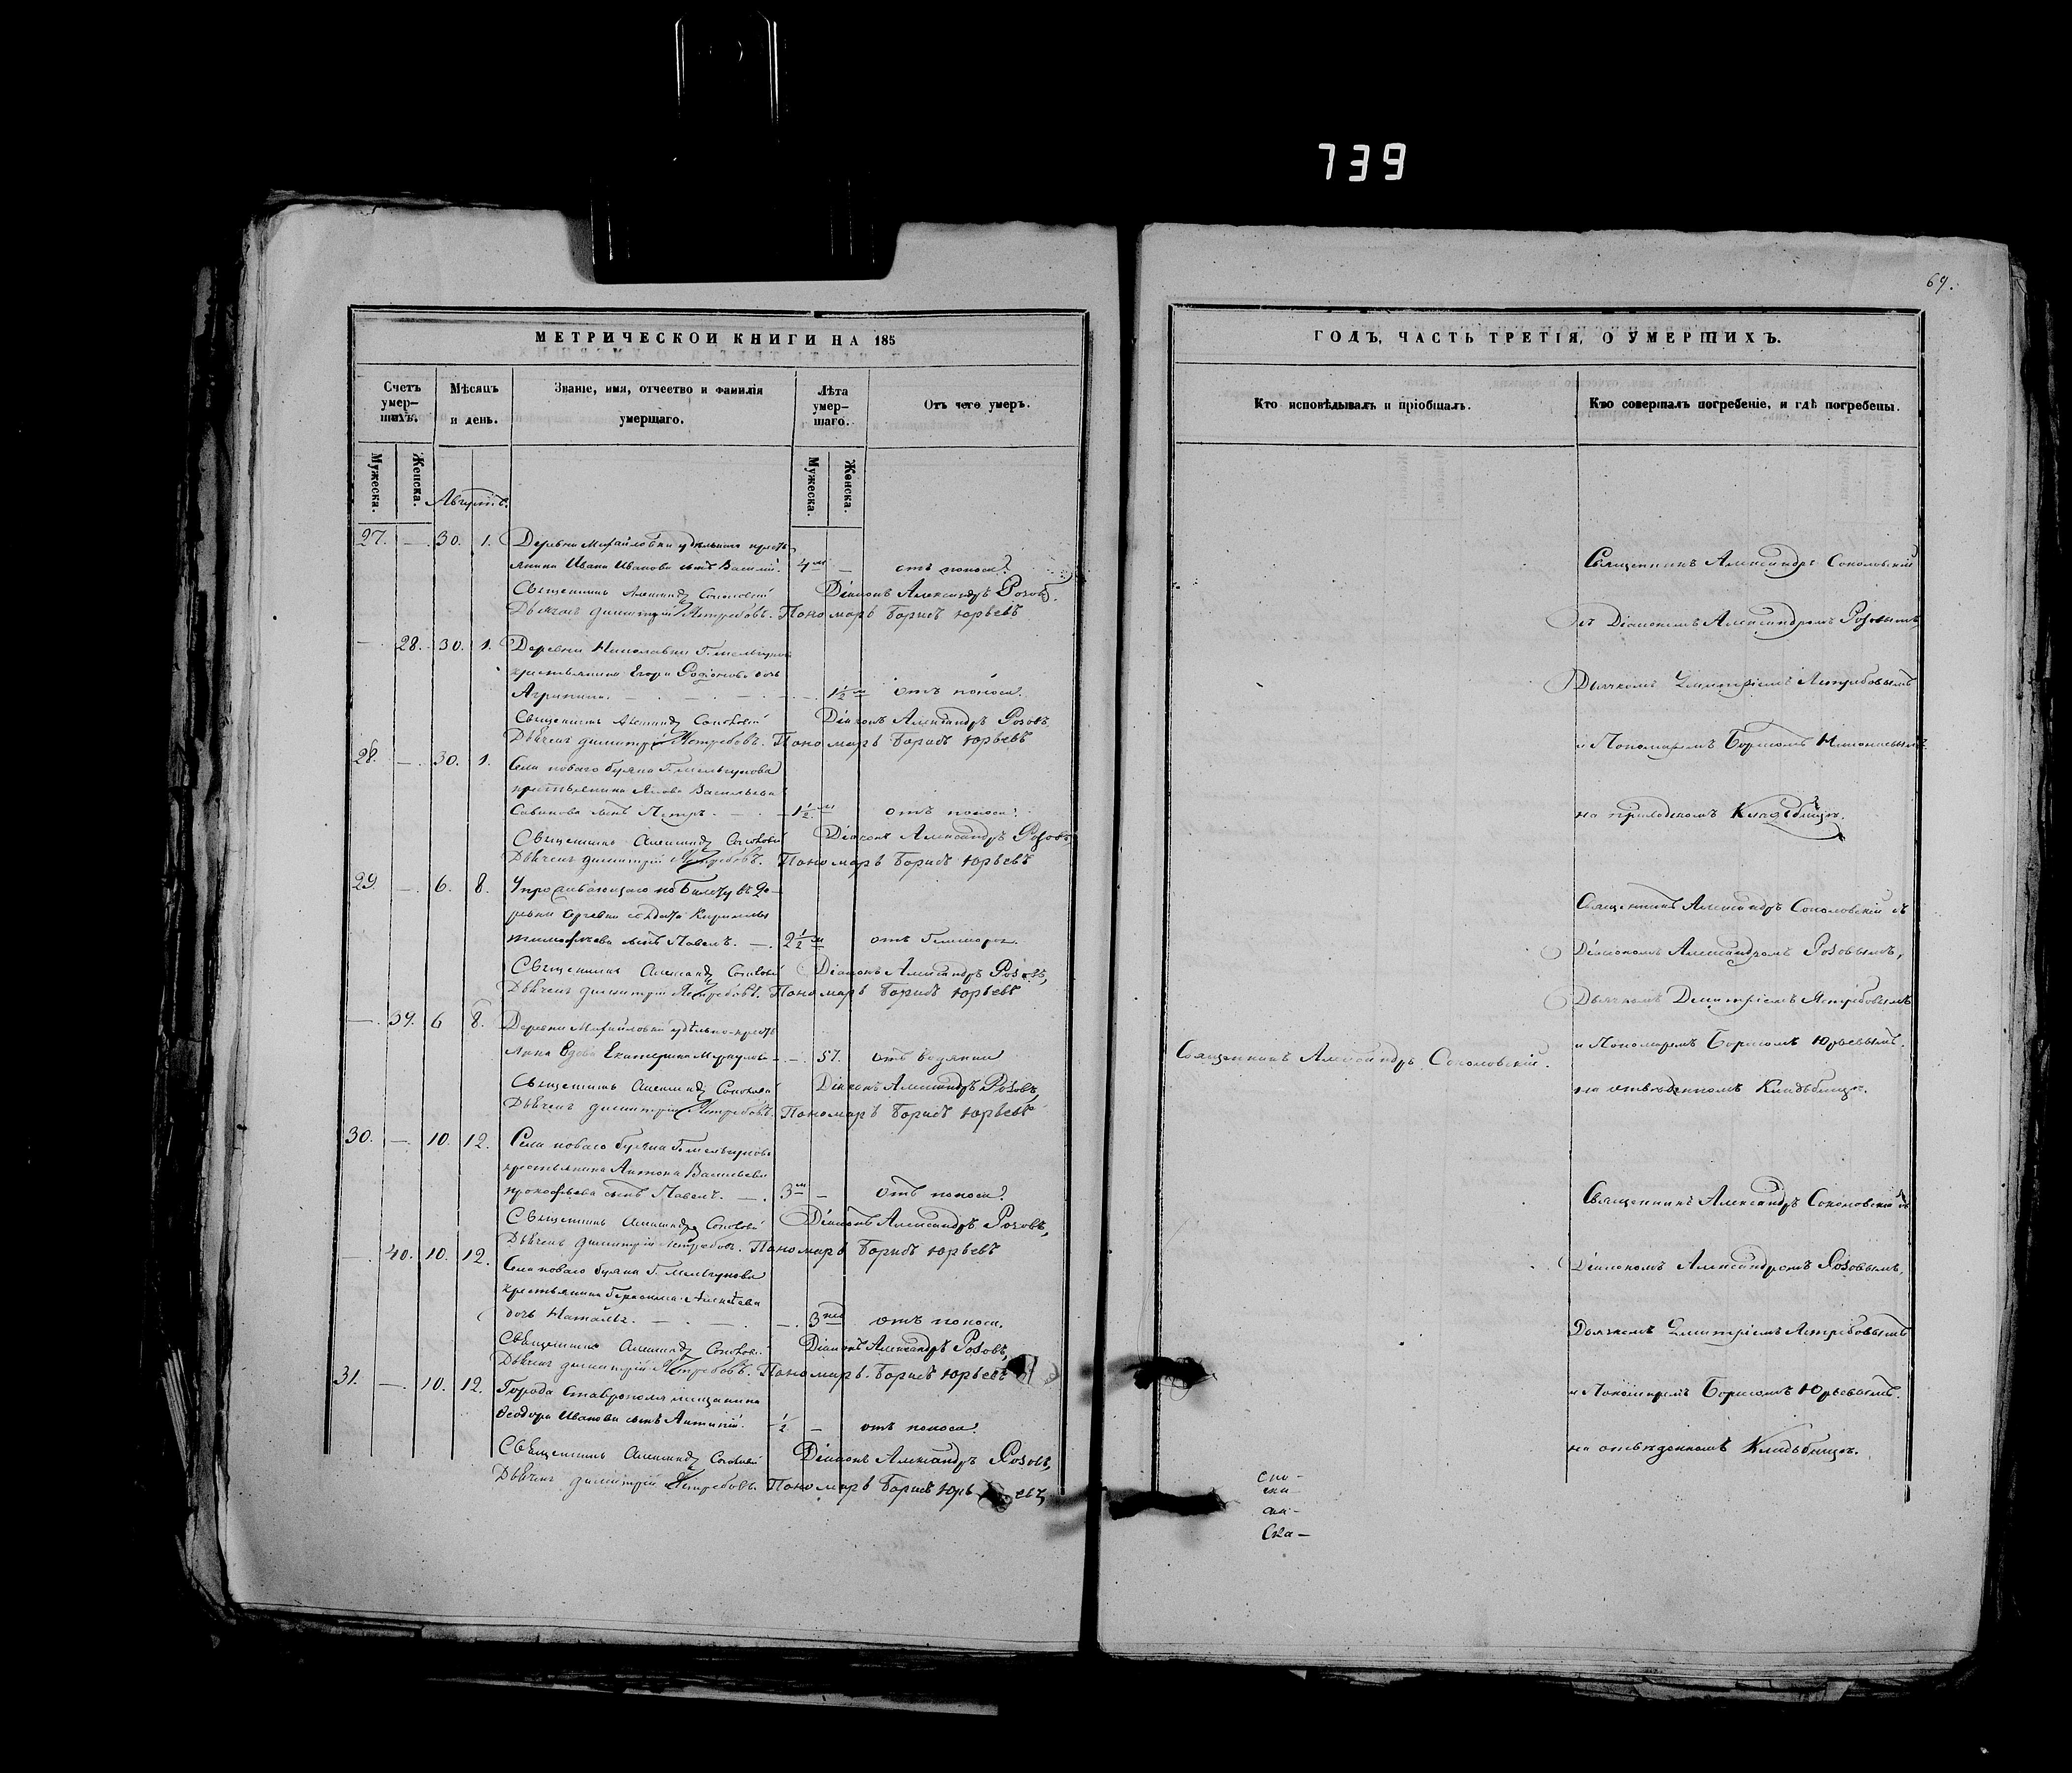 739
69.
МЕТРИЧЕСКОЙ КНИГИ НА 185
ГОДЪ, ЧАСТЬ ТРЕТІЯ, О УМЕРШИХЪ.
Счетъ умер-шихъ.
Мѣсяцъ и день.
Званіе, имя, отчество и фамилія умершаго.
Лѣта умер-шаго.
Отъ чего умеръ.
Кто исповѣдывалъ и пріобщалъ.
Кто совершалъ погребеніе, и гдѣ погребены.
Мужеска.
Женска.
Мужеска.
Женска.
Августъ.
27. — 30. 1. Деревни Михайловки удѣльнаго кресть
янина Ивана Иванова сынъ Василій. 4 м — отъ поноса.
Священникъ Александръ Соколовскій Діаконъ Александръ Розовъ.
Дьячекъ Димитрій Ястребовъ. Пономарь Борисъ Юрьевъ
— 28. 30. 1. Деревни Николаевки Г. Мельгунова
крестьянина Егора Родіонова дочь
Агрипина. — — — 1½ м отъ поноса.
Священникъ Александръ Соколовскій Діаконъ Александръ Розовъ,
Дьячекъ Димитрій Ястребовъ. Пономарь Борисъ Юрьевъ
28. — 30. 1. Села новаго буяна Г. Мельгунова
крестьянина Якова Васильева
Савинова сынъ Петръ. — 1½ м отъ поноса.
Священникъ Александръ Соколовскій Діаконъ Александръ Розовъ
Дьячекъ Димитрій Ястребовъ. Пономарь Борисъ Юрьевъ
29. — 6. 8. У проживающаго по билету въ де-
ревни солдата Кирилы
Тимофѣева сынъ Павелъ. — 2½ м отъ
Священникъ Александръ Соколовскій Діаконъ Александръ Розовъ,
Дьячекъ Димитрій Ястребовъ. Пономарь Борисъ Юрьевъ
— 39. 6 8. Деревни Михайловки удѣльно-кресть
янка вдова Екатерина Меркулова — 57. отъ водянки
Священникъ Александръ Соколовскій Діаконъ Александръ Розовъ,
Дьячекъ Димитрій Ястребовъ. Пономарь Борисъ Юрьевъ
30. — 10. 12. Села новаго буяна Г. Мельгунова
крестьянина Антона Васильева
прокофьева сынъ Павелъ. — 3 м — отъ поноса.
Священникъ Александръ Соколовскій Діаконъ Александръ Розовъ,
Дьячекъ Димитрій Ястребовъ. Пономарь Борисъ Юрьевъ
— 40. 10. 12. Села новаго буяна Г. Мельгунова
крестьянина Герасима Алексѣева
дочь Наталья. — — — 3 отъ поноса.
Священникъ Александръ Соколовскій Діаконъ Александръ Розовъ,
Дьячекъ Димитрій Ястребовъ. Пономарь Борисъ Юрьевъ
31. — 10. 12. Города Ставрополя мещанина
Ѳеодора Иванова сынъ ½ — отъ поноса.
Священникъ Александръ Соколовскій Діаконъ Александръ Розовъ,
Дьячекъ Димитрій Ястребовъ. Пономарь Борисъ Юрьевъ
Священникъ Александръ Соколовскій
съ Діакономъ Александромъ Розовымъ,
Дьячкомъ Димитріемъ Ястребовымъ
и Пономаремъ Борисомъ
на приходскомъ Кладбищѣ.
Священникъ Александръ Соколовскій съ
Діакономъ Александромъ Розовымъ,
Дьячкомъ Димитріемъ Ястребовымъ
Священникъ Александръ Соколовскій.
и Пономаремъ Борисомъ Юрьевымъ.
на отведенномъ Кладбищѣ.
Священникъ Александръ Соколовскій съ
Діакономъ Александромъ Розовымъ,
Дьячкомъ Димитріемъ Ястребовымъ
и Пономаремъ Борисомъ Юрьевымъ.
на отведенномъ Кладбищѣ.